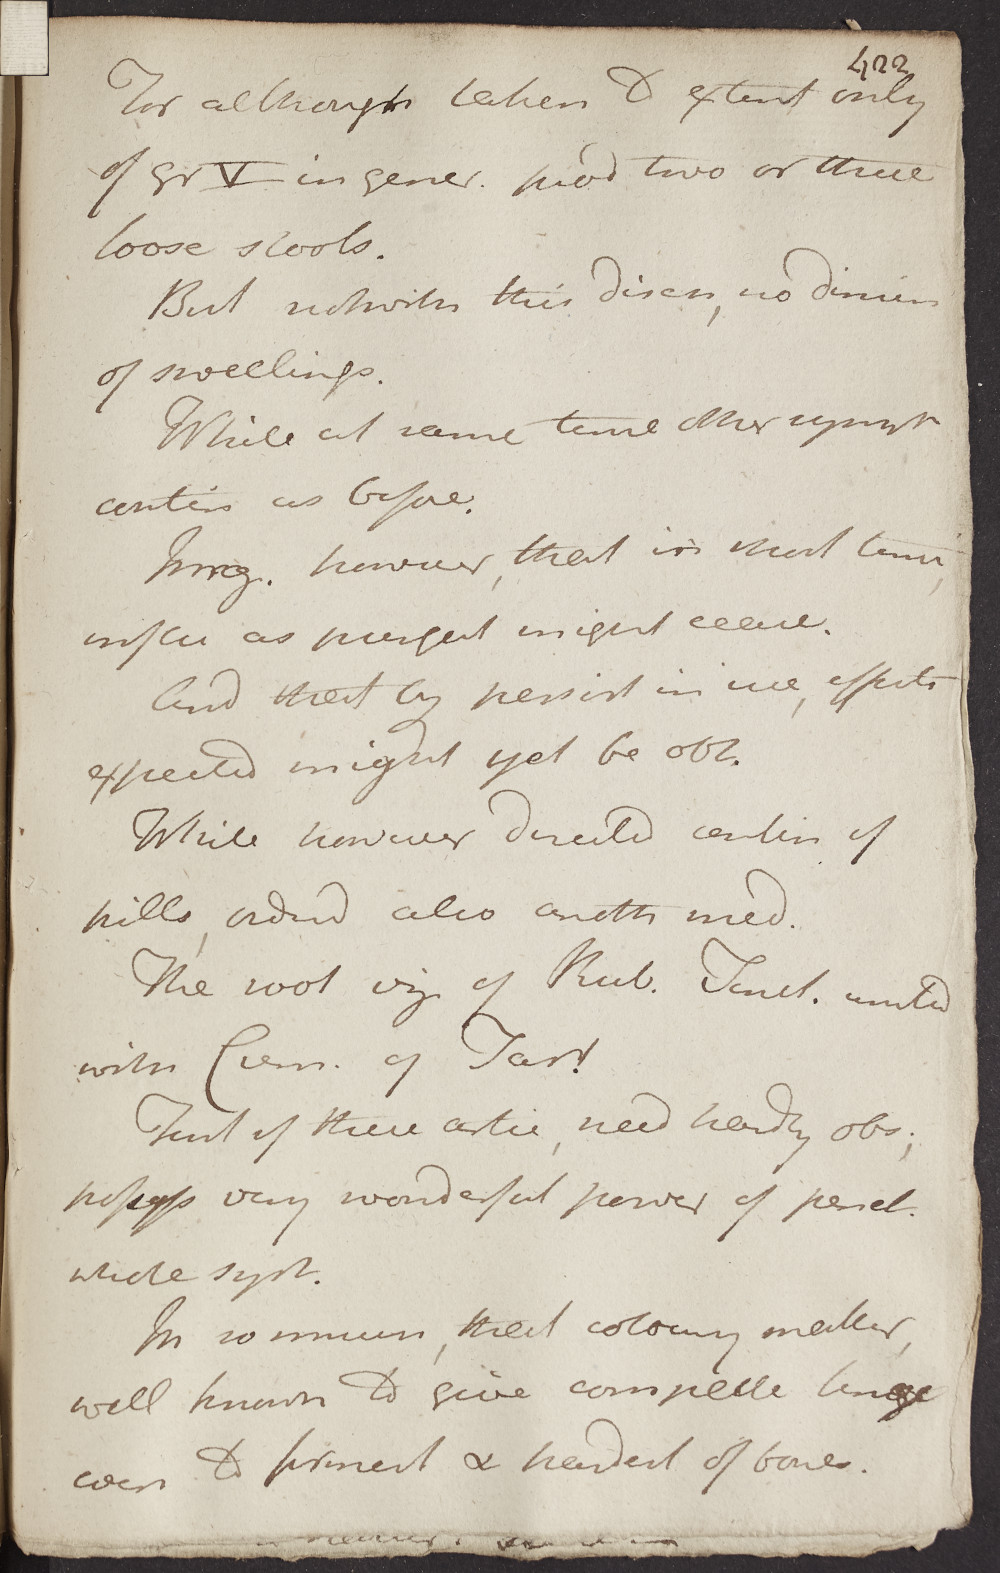 422
For although taken to extent only
of gr V in gener. prod two or three
loose stools.
But notwith this disch, no dimin
of swellings.
While at same time other sympt
contin as before.
Imag. however, that in short time,
influ as purgat might cease.
And that by persist in use, effects
expected might yet be obt.
While however directed contin of
pills, ordered also anoth med.
The root viz of Rub. Tinct. united
with Crem. of Tart
First of these artic, need hardly obs;
possess very wonderful power of penet.
whole syst.
In so much, that colourg matter,
well known to give complete tinge
even to firmest & hardest of bones.